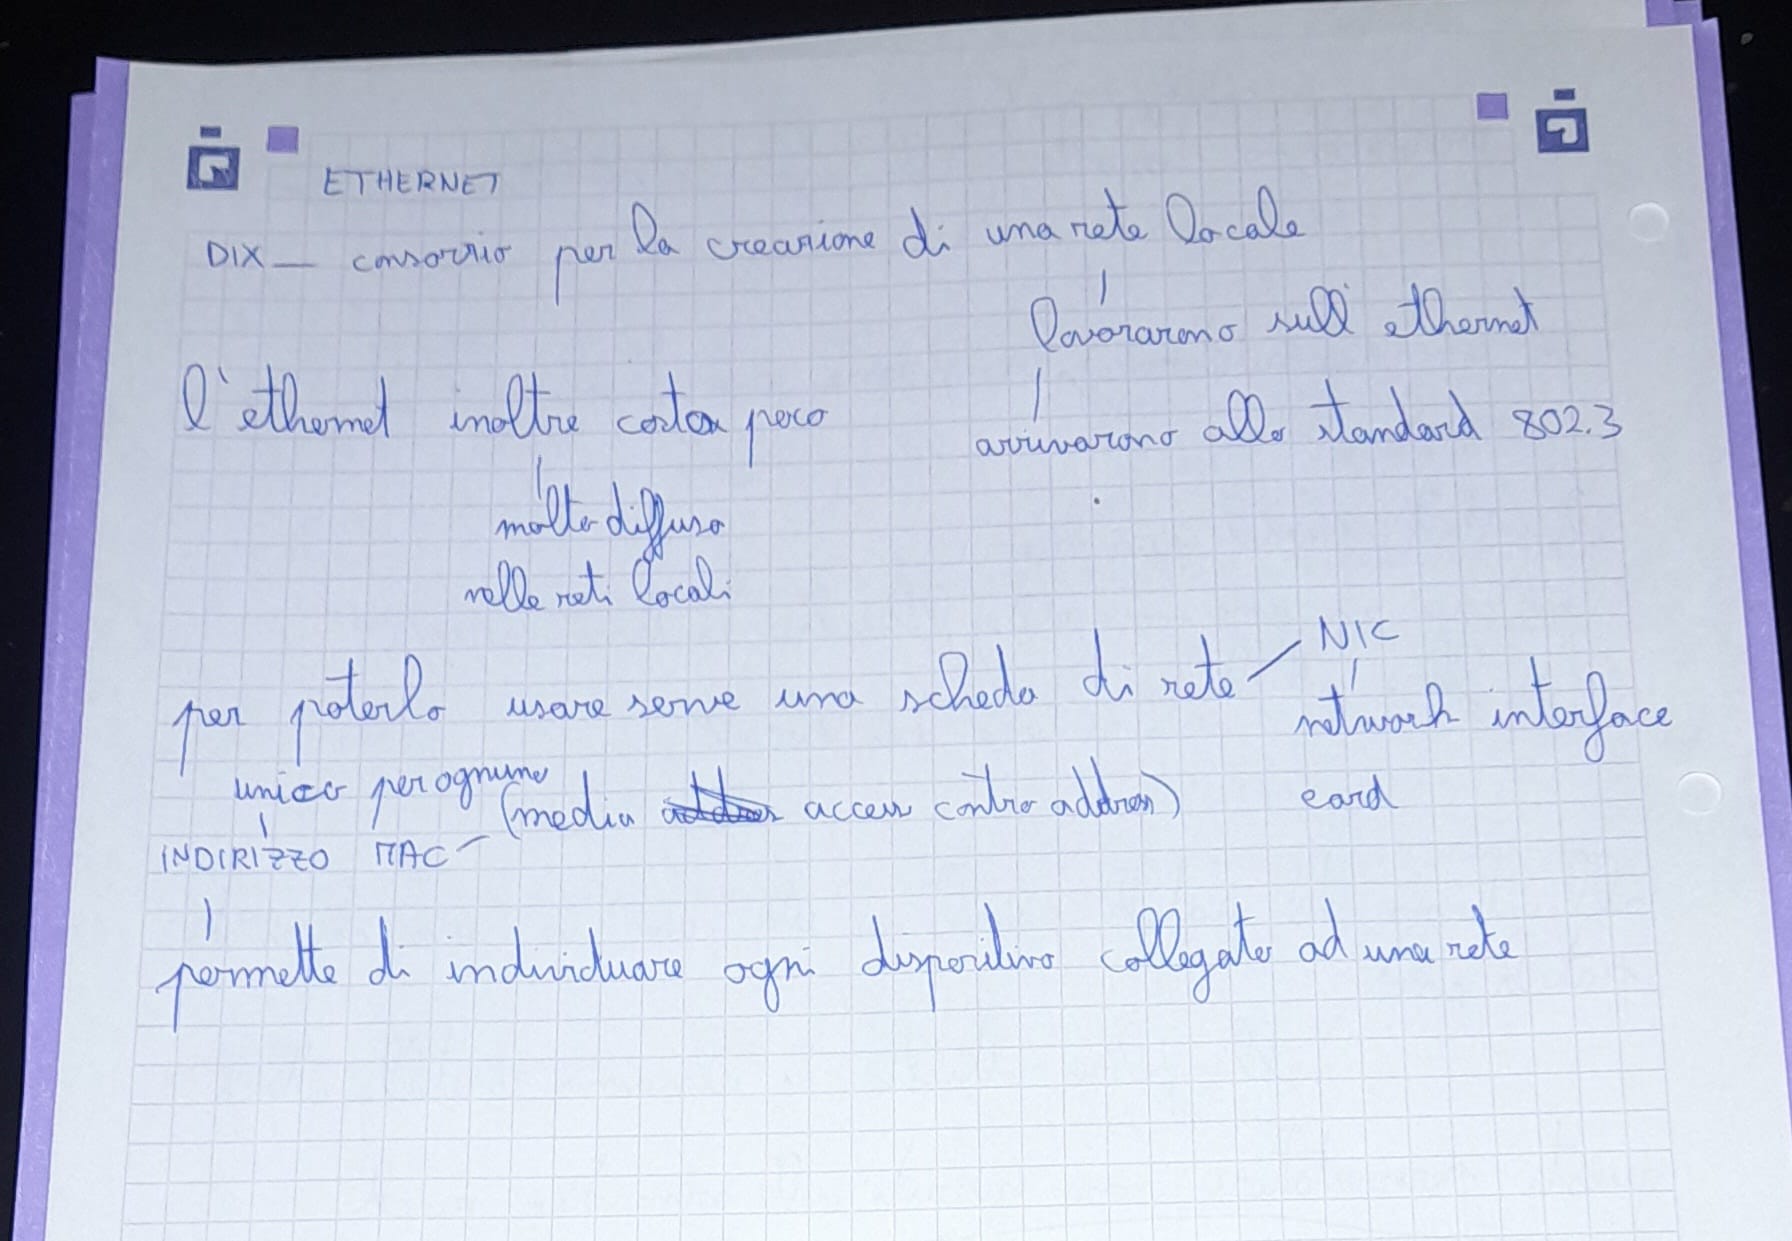 ETHERNET
DIX — consorzio per la creazione di una rete locale
lavorarono sull' ethernet
l'ethernet inoltre costa poco
arrivarono allo standard 802.3
molto diffuso
nelle reti locali
per poterlo usare serve una scheda di rete — NIC
network interface
card
unico per ognuno
(media access contro address)
INDIRIZZO MAC
permette di individuare ogni dispositivo collegato ad una rete